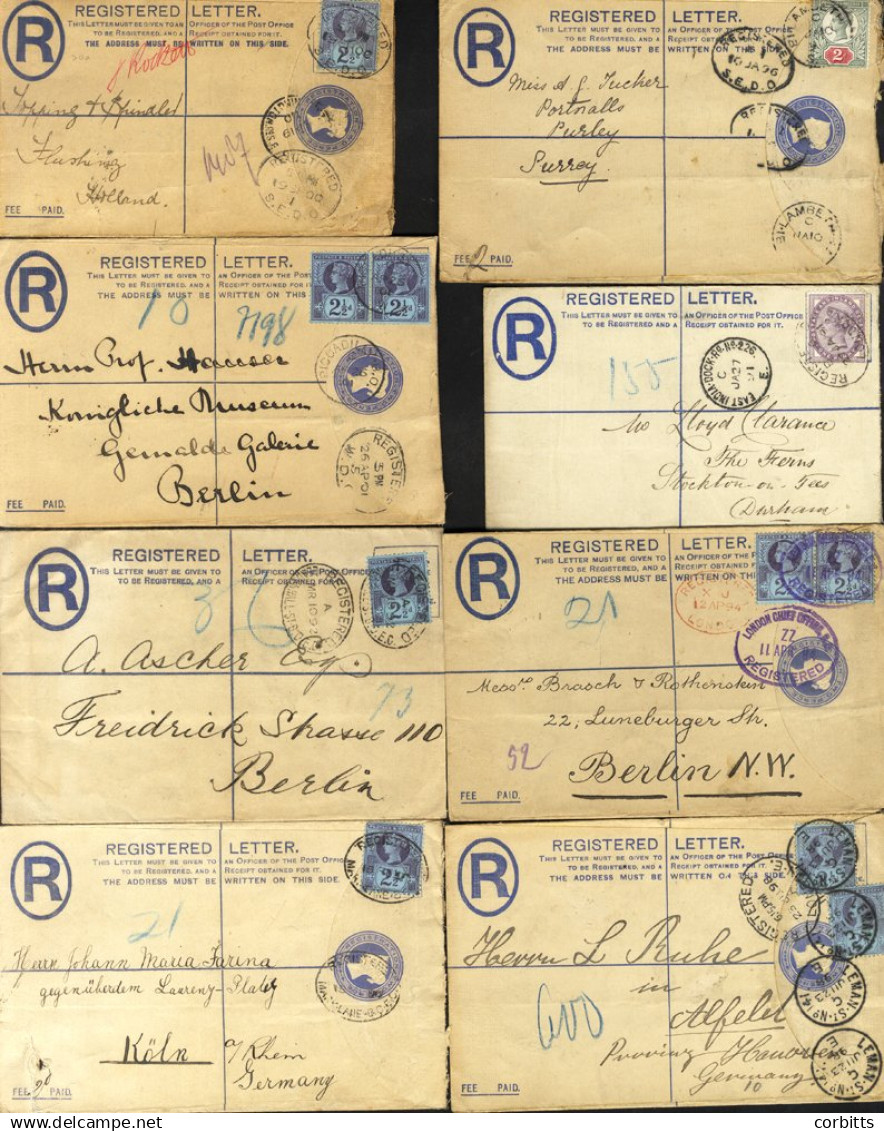 REGISTERED LETTER.
THIS LETTER MUST BE GIVEN TO AN OFFICER OF THE POST OFFICE
TO BE REGISTERED, AND A RECEIPT OBTAINED FOR IT.
THE ADDRESS MUST BE WRITTEN ON THIS SIDE.
R
2½
Topping & Spindler
Flushing
Holland.
REGISTERED
S.E.D.O
FEE PAID.
REGISTERED LETTER.
THIS LETTER MUST BE GIVEN TO AN OFFICER OF THE POST OFFICE
TO BE REGISTERED, AND A RECEIPT OBTAINED FOR IT.
THE ADDRESS MUST BE WRITTEN ON THIS SIDE.
R
2
REGISTERED
10 JA 96
S.E.D.O
Miss A. J. Tucker
Portnalls
Purley
Surrey
LAMBETH
FEE PAID.
2
REGISTERED LETTER.
THIS LETTER MUST BE GIVEN TO AN OFFICER OF THE POST
TO BE REGISTERED, AND A RECEIPT OBTAINED FOR
THE ADDRESS MUST BE WRITTEN ON THIS
R
2½ 2½
10
7198
Herrn Prof. Hauser
Konigliche Museum
Gemalde Galerie
Berlin
PICCADILLY
REGISTERED
5 PM
26 AP 01
W.D.O
FEE PAID.
REGISTERED LETTER.
THIS LETTER MUST BE GIVEN TO AN OFFICER OF THE POST OFFICE
TO BE REGISTERED, AND A RECEIPT OBTAINED FOR IT.
R
155
EAST INDIA-DOCK-RD. No 226.
C
JA 27
91
E.
Mr Lloyd Clarance
The Ferns
Stockton-on-Tees
Durham
REGISTERED LETTER.
THIS LETTER MUST BE GIVEN TO AN OFFICER OF THE POS
TO BE REGISTERED, AND A RECEIPT OBTAINED FOR
R
2½
REGISTERED
A
36
A. Ascher Esq.
Freidrick Strasse 110
73
Berlin
REGISTERED LETTER.
THIS LETTER MUST BE GIVEN TO AN OFFICER OF THE POST
TO BE REGISTERED, AND A RECEIPT OBTAINED FOR
THE ADDRESS MUST BE
R
2½ 2½
21
12 AP 94
LONDON CHIEF OFFICE, E.C.
ZZ
11 APR
REGISTERED
Messrs. Brasch & Rothenstein
22, Luneburger Str.
52
Berlin N.W.
FEE PAID.
REGISTERED LETTER.
THIS LETTER MUST BE GIVEN TO AN OFFICER OF THE POST OFFICE
TO BE REGISTERED, AND A RECEIPT OBTAINED FOR IT.
THE ADDRESS MUST BE WRITTEN ON THIS SIDE.
R
2½
21
Herrn Johann Maria Farina
gegenüberdem Laurenz-Platz
Köln a/Rhein
Germany
FEE PAID.
REGISTERED LETTER.
THIS LETTER MUST BE GIVEN TO AN OFFICER OF THE POST OF
TO BE REGISTERED, AND A RECEIPT OBTAINED FOR IT.
THE ADDRESS MUST BE WRITTEN ON THIS SIDE.
R
REGISTERED
6 15 PM
LEMAN-ST-No 141
E
Herrn L. Ruhe
in
Alfeld
600
Provinz Hanover
Germany
10
FEE PAID.
delcampe.net
corbitts